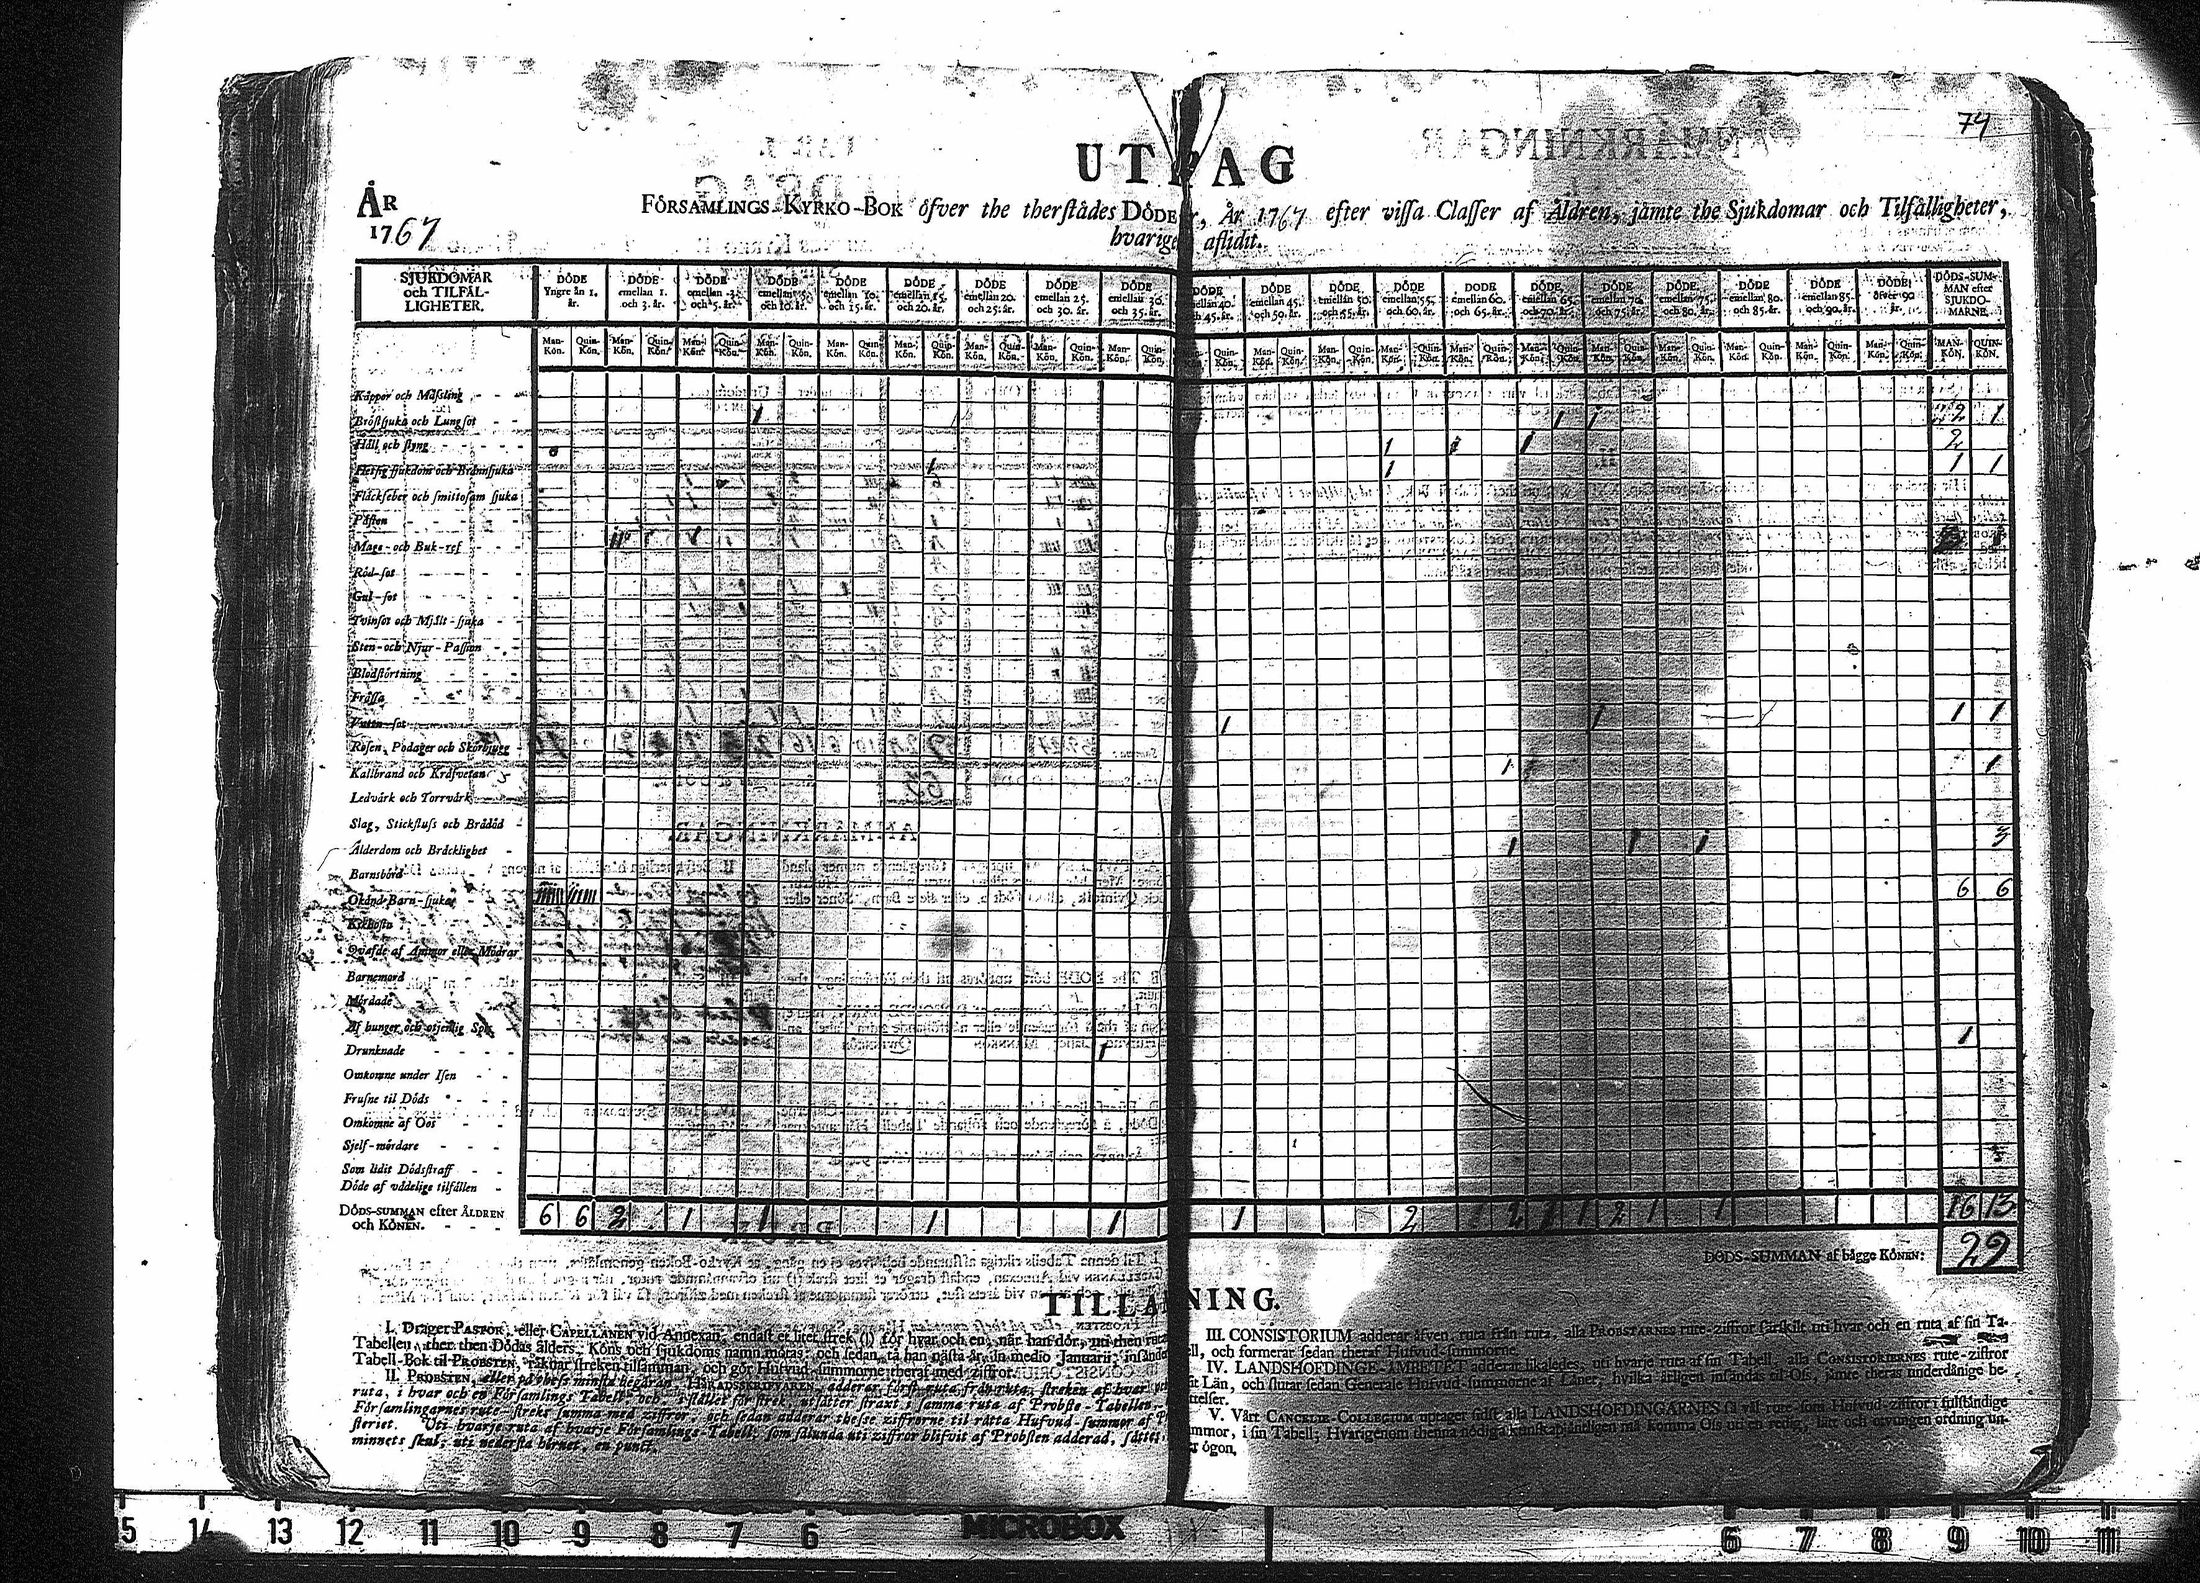 74
UT AG
ÅR
1767
FÖRSAMLINGS-KYRKO-BOK öfver the therstädes DÖDE r, År 1767 efter vissa Classer af Åldren, jämte the Sjukdomar och Tilfälligheter,
hvarige aflidit.
SJUKDOMAR och TILFÄL-LIGHETER.
DÖDE Yngre än 1. år.
DÖDE emellan 1. och 3. år.
DÖDE emellan 3. och 5. år.
DÖDE emellan 5. och 10. år.
DÖDE emellan 10. och 15. år.
DÖDE emellan 15. och 20. år.
DÖDE emellan 20. och 25. år.
DÖDE emellan 25. och 30. år.
DÖDE emellan 30. och 35. år.
DÖDE ellan 40. h 45. år.
DÖDE emellan 45. och 50. år.
DÖDE emellan 50. och 55. år.
DÖDE emellan 55. och 60. år.
DÖDE emellan 60. och 65. år.
DÖDE emellan 65. och 70. år.
DÖDE emellan 70. och 75. år.
DÖDE emellan 75. och 80. år.
DÖDE emellan 80. och 85. år.
DÖDE emellan 85. och 90. år.
DÖDE öfver 90 år.
DÖDS-SUM-MAN efter SJUKDO-MARNE.
Man-Kön. Quin-Kön. Man-Kön. Quin-Kön. Man-Kön. Quin-Kön. Man-Kön. Quin-Kön. Man-Kön. Quin-Kön. Man-Kön. Quin-Kön. Man-Kön. Quin-Kön. Man-Kön. Quin-Kön. Man-Kön. Quin-Kön.
Quin-Kön. Man-Kön. Quin-Kön. Man-Kön. Quin-Kön. Man-Kön. Quin-Kön. Man-Kön. Quin-Kön. Man-Kön. Quin-Kön. Man-Kön. Quin-Kön. Man-Kön. Quin-Kön. Man-Kön. Quin-Kön. Man-Kön. Quin-Kön. Man-Kön. Quin-Kön. MAN-KÖN. QUIN-KÖN.
Kåppor och Mäßling
Bröstsjuka och Lungsot 1 1 1 2 1
Håll och styng 1 1 1 2
Hetsig sjukdom och Brännsjuka 1 1 1 1
Fläckfeber och smittosam sjuka
Påsten
Mage-och Buk-ref
Röd-sot
Gul-sot
Tvinsot och Mjält-sjuka
Sten-och Njur-Passion
Blodstörtning
Frossa
Vattu-sot 1 1 1 1
Rosen, Podager och Skörbjugg
Kallbrand och Kräfvetan 1 1
Ledvärk och Torrvärk
Slag, Stickfluss och Bråddöd
Ålderdom och Bräcklighet 1 1 1 3
Barnsbörd
Okänd Barn-sjuka 6 6
Kikhosta
Qvafde af Ammor eller Modrar
Barnemord
Mördade
Af hunger och otjenlig Spis
Drunknade 1 1
Omkomne under Isen
Frusne til Döds
Omkomne af Oos
Sjelf-mördare
Som lidit Dödsstraff
Döde af vådelige tilfällen
DÖDS-SUMMAN efter ÅLDREN och KÖNEN. 6 6 2 1 1 1 1 1 2 1 2 1 1 2 1 1 16 13
DÖDS-SUMMAN af bägge KÖNEN: 29
TILLÄ NING.
I. Drager PASTOR, eller CAPELLANEN vid Annexan, endast et litet strek (|) för hvar och en, när han dör, uti then ruta
Tabellen, ther then Dödas ålders, Köns och sjukdoms namn mötas; och sedan, tå han nästa år, in medio Januarii, insände
Tabell-Bok til PROBSTEN, räknar streken tilsamman, och gör Hufvud-summorne theraf med ziffror.
II. PROBSTEN, eller på thess minsta begäran HÄRADSSKRIFVAREN, adderar först ruta från ruta, streken af hvar
ruta, i hvar och en Församlings Tabell, och, i stället för strek, utsätter straxt i samma ruta af Probste-Tabellen,
Församlingarnes rute-streks summa med ziffror, och sedan adderar thesse ziffrorne til rätta Hufvud-summor af P
steriet. Uti hvarje ruta af hvarje Församlings-Tabell, som sålunda uti ziffror blifvit af Probsten adderad, sättes
minnets skul, uti nedersta hörnet, en punct.
III. CONSISTORIUM adderar äfven, ruta från ruta, alla PROBSTARNES rute-ziffror särskilt uti hvar och en ruta af sin Ta-
ll, och formerar sedan theraf Hufvud-summorne.
IV. LANDSHÖFDINGE-ÄMBETET adderar likaledes, uti hvarje ruta af sin Tabell, alla CONSISTORIERNES rute-ziffror
ät Län, och slutar sedan Generale Hufvud-summorne af Länet, hvilka årligen insändas til Oss, jämte theras underdånige be-
ttelser.
V. Vårt CANCELIE-COLLEGIUM uptager sidst alla LANDSHÖFDINGARNES så väl rute-som Hufvud-ziffror i fullständige
mmor, i sin Tabell; Hvarigenom thenna nödiga kunskapsämtligen må komma Oss uti en redig, lätt och otvungen ordning un-
r ögon.
15 14 13 12 11 10 9 8 7 6 MICROBOX 6 7 8 9 10 11